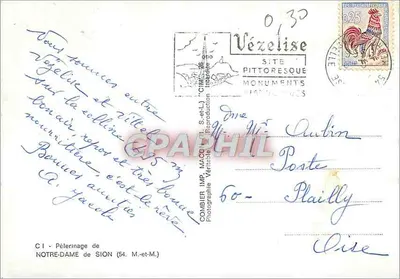 0,30
Vézelise
SITE
PITTORESQUE
MONUMENTS
0,25
Nous sommes entre
Vézelise et
sur la colline 495 m
bon air, repos et très bonne
nourriture, c'est le rêve.
Bonnes amitiés
COMBIER IMP. MACON (S.-et-L.) "CIM"
Photographie Véritable Reproduction Interdite
Mr Aubin
Poste
60- Plailly
Oise
PHOTO
Printed Memories
C I - Pèlerinage de
NOTRE-DAME de SION (54. M.-et-M.)